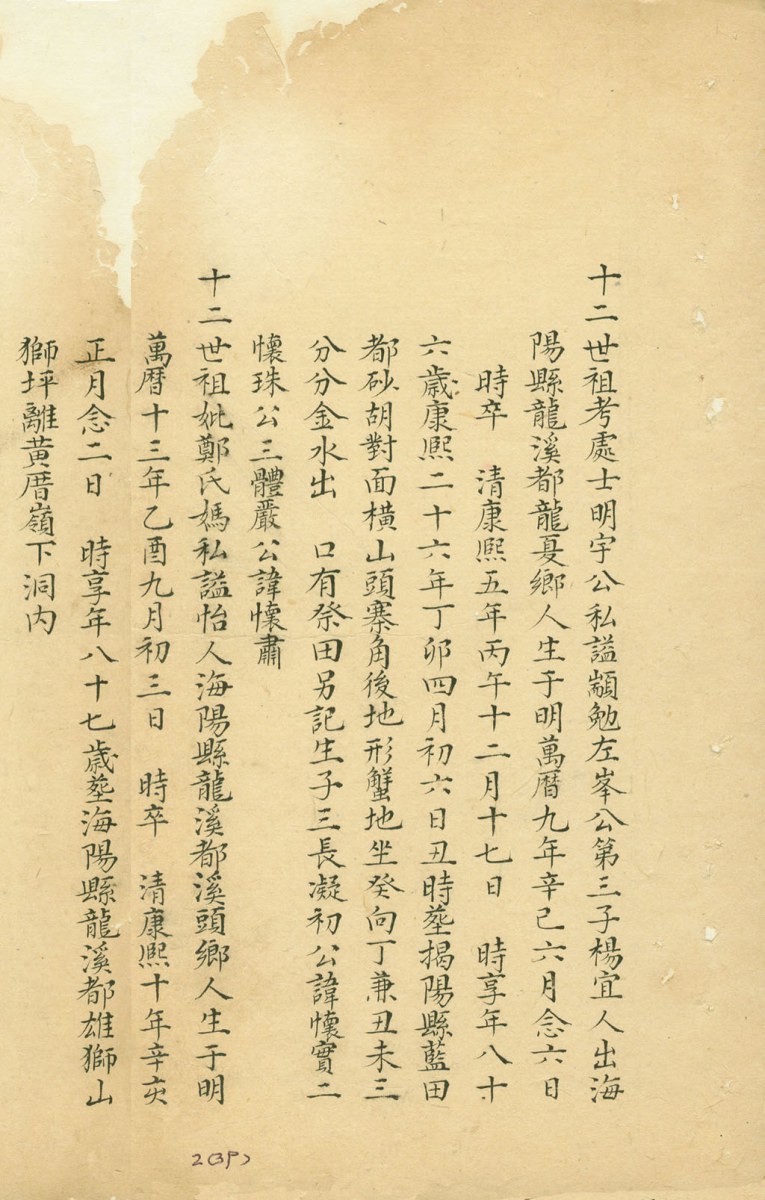 十二世祖考處士明宇公私謚顓勉左峯公第三子楊宜人出海
陽縣龍溪都龍夏鄉人生于明萬曆九年辛巳六月念六日
時卒　清康熙五年丙午十二月十七日　時享年八十
六歲康熙二十六年丁卯四月初六日丑時塟揭陽縣藍田
都砂胡對面橫山頭寨角後地形蟹地坐癸向丁兼丑未三
分分金水出　口有祭田另記生子三長凝初公諱懷實二
懷珠公三體嚴公諱懷肅
十二世祖妣鄭氏媽私謚怡人海陽縣龍溪都溪頭鄉人生于明
萬曆十三年乙酉九月初三日　時卒　清康熙十年辛亥
正月念二日　時享年八十七歲塟海陽縣龍溪都雄獅山
獅坪離黃厝嶺下洞內
2(3P)